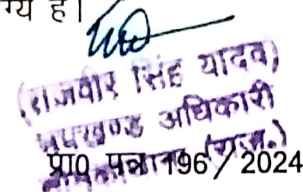 ग्य है।
(राजवीर सिंह यादव)
उपखण्ड अधिकारी
(राज.)
प्रा0 पत्र 196 / 2024